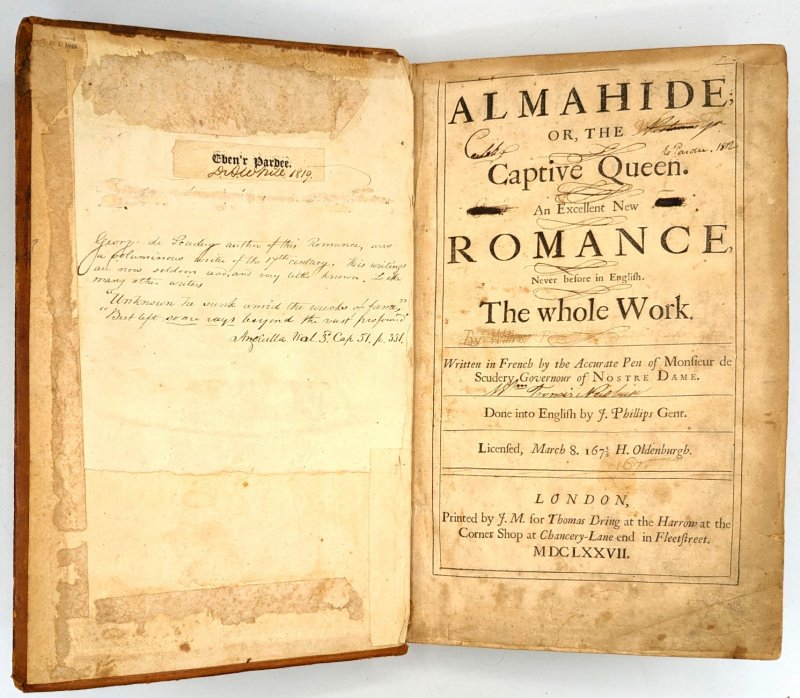 Eben'r Pardee.
White 1819.
George de Scudery author of this Romance, was
a voluminous writer of the 17th century. His writings
are now seldom read, and very little known. Like
many other writers
"Unknown he sunk amid the wrecks of fame,"
"But left some rays beyond the vast profound"
p. 331.
ALMAHIDE;
OR, THE
Caleb
Pardee. 1812
Captive Queen.
An Excellent New
ROMANCE,
Never before in English.
The whole Work.
Written in French by the Accurate Pen of Monsieur de
Scudery Governour of NOSTRE DAME.
Francis
Done into English by J. Phillips Gent.
Licensed, March 8. 167⅔ H. Oldenburgh.
LONDON,
Printed by J. M. for Thomas Dring at the Harrow at the
Corner Shop at Chancery-Lane end in Fleetstreet.
MDCLXXVII.